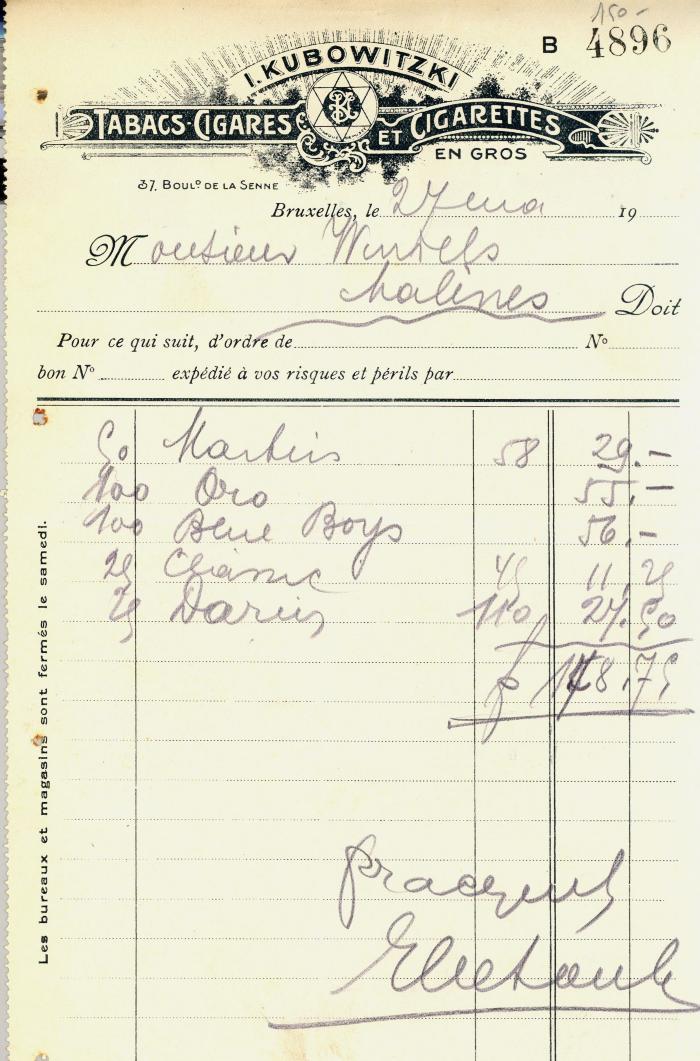 150 -
B 4896
I. KUBOWITZKI
TABACS-CIGARES ET CIGARETTES
EN GROS
37, BOULD DE LA SENNE
Bruxelles, le 27 mai 19
Monsieur
Malines Doit
Pour ce qui suit, d'ordre de No
bon No expédié à vos risques et périls par
50 Martins 58 29.-
100 Oro 55.-
100 Blue Boys 56.-
25 Classic 45 11,25
25 Darius 110 27.50
f 148,75
Les bureaux et magasins sont fermés le samedi.